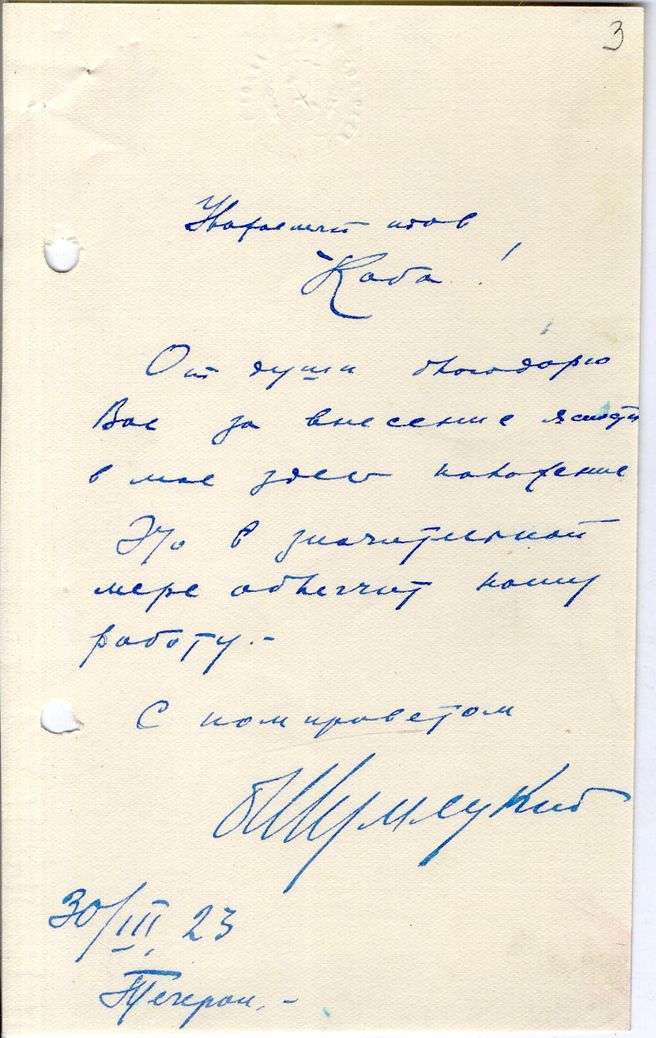 3
Уважаемый тов
Каба!
От души благодарю
Вас за внесение ясности
в мое здесь положение
Это в значительной
мере облегчит нашу
работу.-
С ком приветом
БШумяцкий
30/III. 23
Тегеран.-